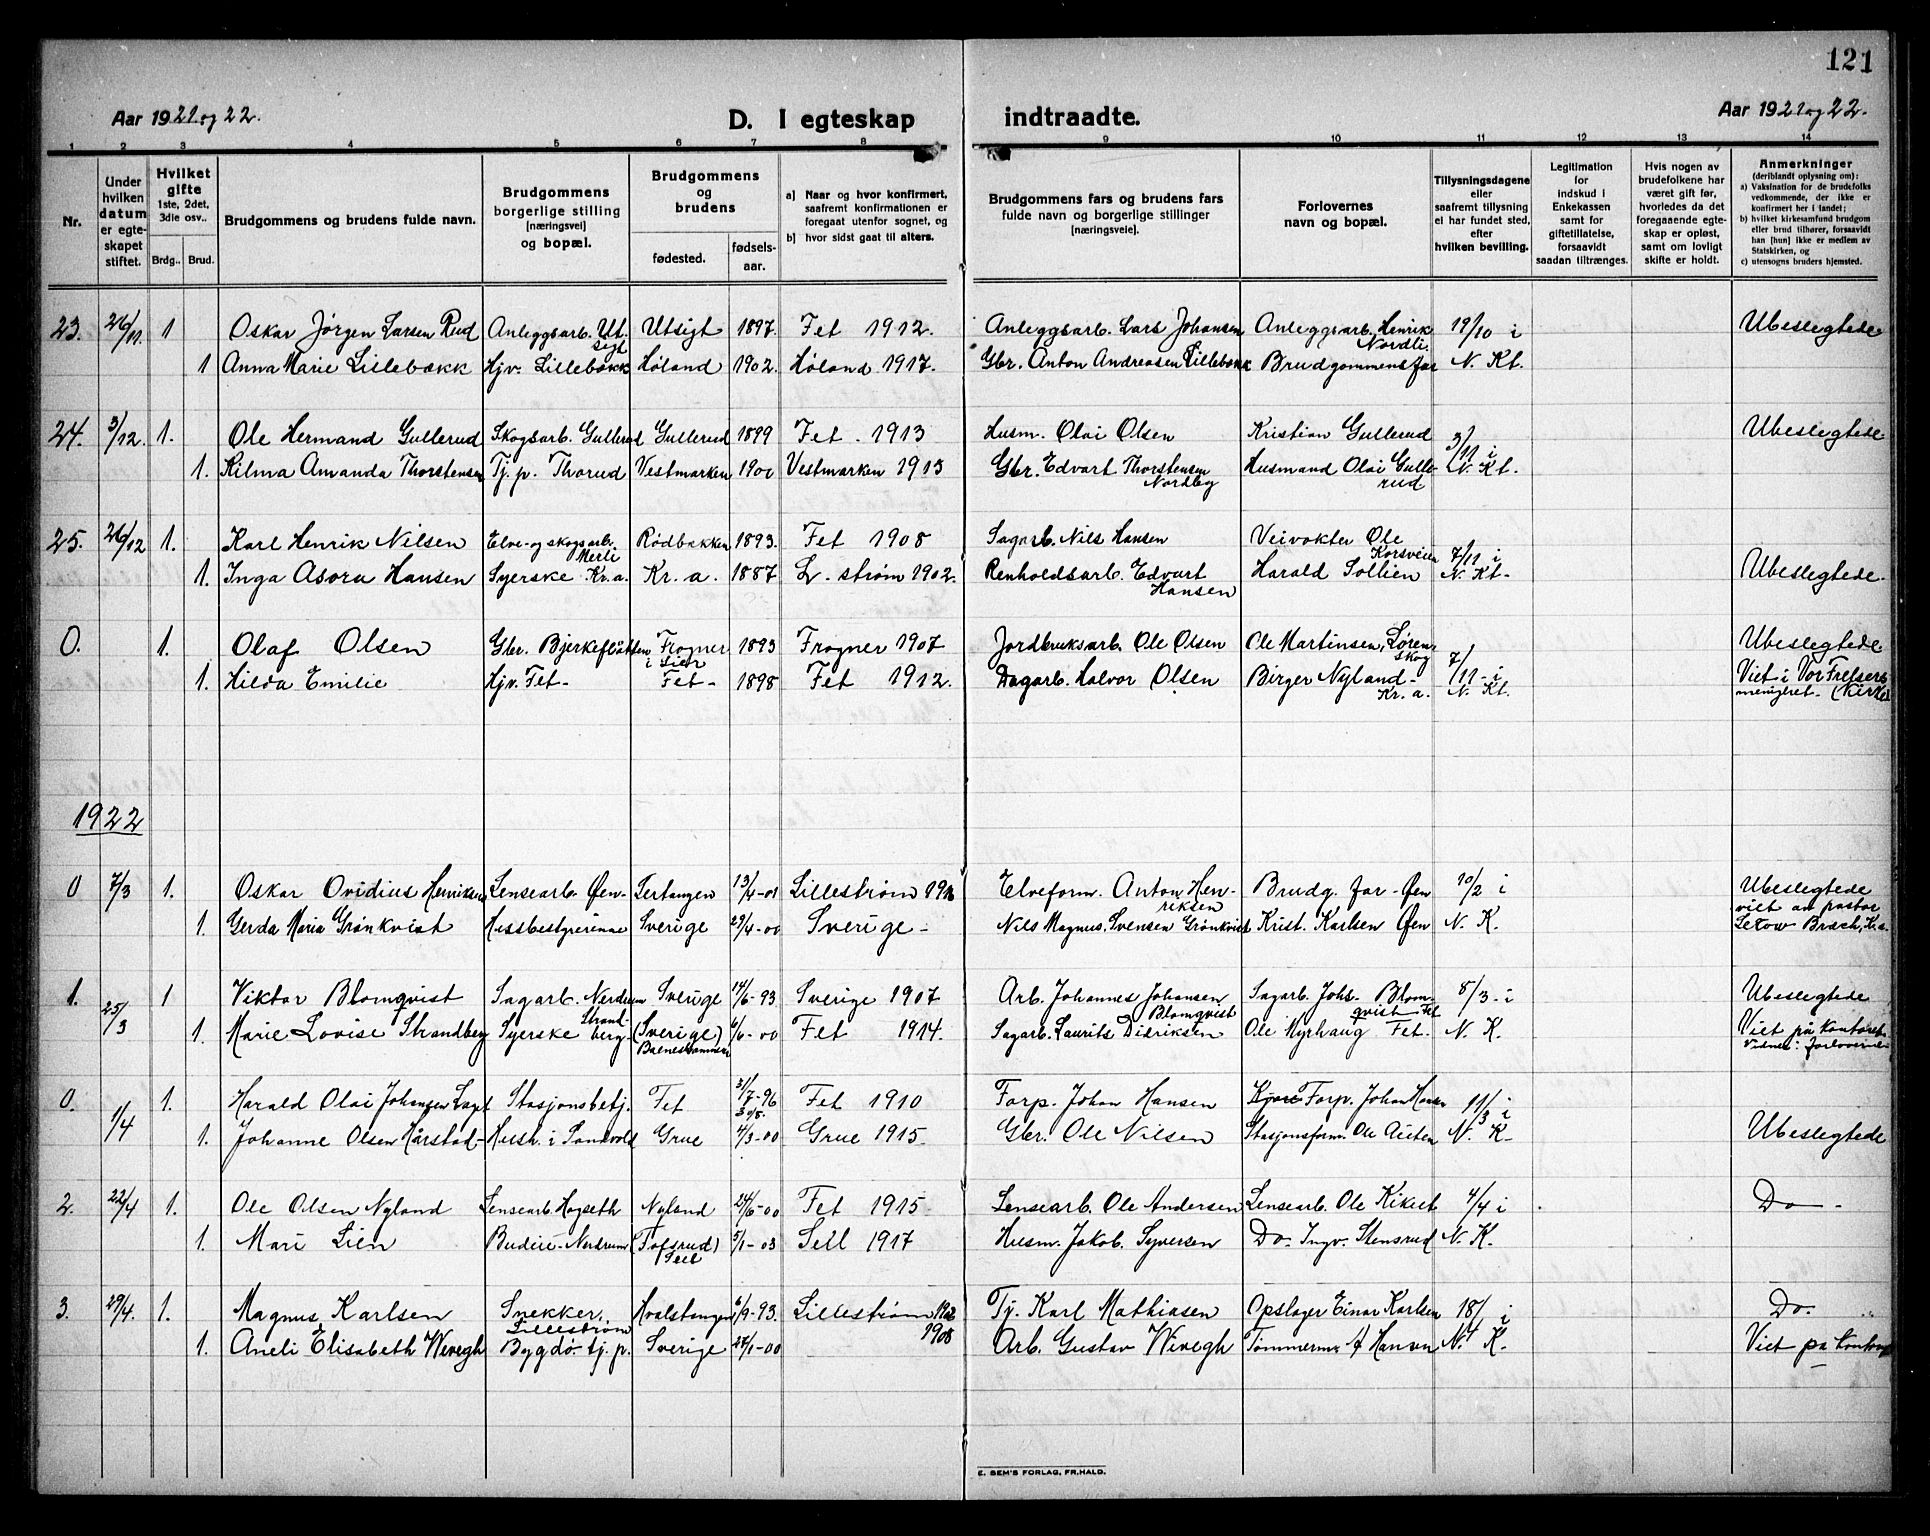 121
Aar 1921 og 22.
D. I egteskap indtraadte.
Aar 1921 og 22.
1 2 3 4 5 6 7 8 9 10 11 12 13 14
Nr.
Under hvilken datum er egteskapet stiftet.
Hvilket gifte 1ste, 2det, 3die osv..
Brdg..
Brud.
Brudgommens og brudens fulde navn.
Brudgommens borgerlige stilling [næringsvei] og bopæl.
Brudgommens og brudens
fødested.
fødsels-aar.
a) Naar og hvor konfirmert, saafremt konfirmationen er foregaat utenfor sognet, og
b) hvor sidst gaat til alters.
Brudgommens fars og brudens fars fulde navn og borgerlige stillinger [næringsveie].
Forlovernes navn og bopæl.
Tillysningsdagene eller saafremt tillysning ei har fundet sted, efter hvilken bevilling.
Legitimation for indskud i Enkekassen samt for giftetillatelse, forsaavidt saadan tiltrænges.
Hvis nogen av brudefolkene har været gift før, hvorledes da det foregaaende egteskap er opløst, samt om lovligt skifte er holdt.
Anmerkninger (deriblandt oplysning om):
a) Vaksination for de brudefolks vedkommende, der ikke er konfirmert her i landet;
b) hvilket kirkesamfund brudgom eller brud tilhører, forsaavidt han [hun] ikke er medlem av Statskirken, og
c) utensogns bruders hjemsted.
23. 26/11. 1 Oskar Jørgen Larsen Rud Anleggsarb. Utsigt Utsigt 1897. Fet 1912. Anleggsarb. Lars Johansen Anleggsarb. Henrik Nordli. 19/10 i Ubeslegtede
1 Anna Marie Lillebækk Hjv. Lillebækk Høland 1902. Høland 1917. Gbr. Anton Andreasen Lillebækk Brudgommens far N. Kt.
24. 3/12. 1. Ole Hermand Gullerud Skogsarb. Gullerud Gullerud 1899 Fet. 1913 Husm. Olai Olsen Kristian Gullerud 3/11 i Ubeslegtede
1. Kilma Amanda Thorstensen Tj. p. Thorud Vestmarken 1901 Vestmarken 1913 Gbr. Edvart Thorstensen Nordby Husmand Olai Gullerud. N. Kt.
25. 26/12 1. Karl Henrik Nilsen Elve- og skogsarb. Merli Rødbækken 1893. Fet 1908 Sagarb. Nils Hansen Veivokter Ole Korsveien 7/11 i
1. Inga Asora Hansen Syerske Kr.a. Kr. a. 1887 L. strøm 1902. Renholdsarb. Edvart Hansen Harald Sollien N. Kt. Ubeslegtede.
0. 1. Olaf Olsen Gbr. Bjerkeflåtten Frogner i Lier 1893 Frogner 1907 Jordbruksarb. Ole Olsen Ole Martinsen, Lørenskog 7/11 i Ubeslegtede
1. Hilda Emilie Hjv. Fet Fet 1898 Fet 1912. Dagarb. Halvor Olsen Birger Nyland Kr. a. N. Kt. Viet i Vor Frelsers menighet (Kirke)
1922
0 7/3 1. Oskar Ovidius Henriksen Lensearb. Øen Tertangen 13/4-01 Lillestrøm Elveform. Anton Henriksen Brudg. far Øen 10/2 i Ubeslegtede
1. Gerda Maria Grønkvist Husbestyrerinne Sverige 29/4-00 Sverige Nils Magnus Svensen Grønkvist Krist. Karlsen Øen N. K. viet av pastor
1. 25/3 1 Viktor Blomqvist Sagarb. Nerdrum Sverige 14/6-93 Sverige 1907 Arb. Johannes Johansen Blomqvist Sagarb. Johs. Blomqvist Fet 5/3 i Ubeslegtede
1. Marie Lovise Strandberg Syerske Strandberg (Sverige) 6/6-00 Fet 1914. Sagarb. Laurits Didriksen Ole Myrhaug Fet. N. K. Viet på kontoret Vidner: forloverne
0. 1/4 1. Harald Olai Johansen Stasjonsbetj. Fet 31/7-96 Fet 1910 Forp. Johan Hansen Forp. Johan Hansen 11/3 i
1. Johanne Olsen Hårstad Hush. i Sandvold Grue 4/3-00 Grue 1915. Gbr. Ole Nilsen Stasjonsform. Ole Auten N. K. Ubeslegtede
2. 22/4 1. Ole Olsen Nyland Lensearb. Hogseth Nyland 24/6-00 Fet 1915 Lensearb. Ole Andersen Lensearb. Ole Kikut 4/4 i Do
1. Mari Lien Budeie Nerdrum (Tofsrud) Sell 5/1-03 Sell 1917 Husm. Jakob Syversen Do. Ingv. Stensrud N. K.
3. 29/4. 1. Magnus Karlsen Snekker, Lillestrøm Hvalstangen 6/9-93. Lillestrøm 1908 Tj. Karl Mathiasen Opslager Einar Karlsen 18/4 i Do.
1. Aneli Elisabeth Wevegh Bygdø tj. p. Sverige 24/1-00 Arb. Gustav Wevegh Tømmerm. A Hansen N. K. Viet på kontoret
E. SEM'S FORLAG, FR.HALD.